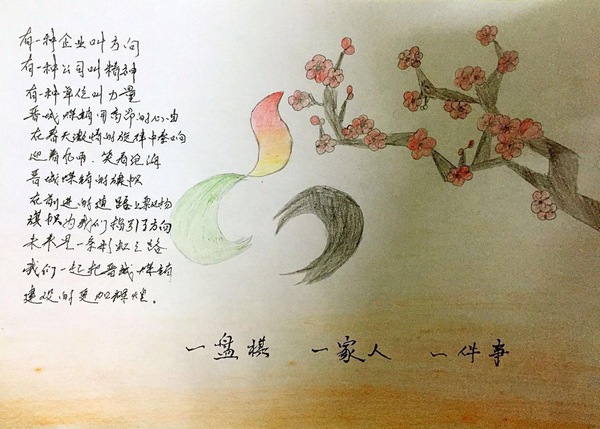 有一种企业叫方向
有一种公司叫精神
有一种单位叫力量
晋城煤销用高昂的心曲
在春天激情的旋律中奏响
迎着风雨、笑看沧海
晋城煤销的旗帜
在前进的道路上飘扬
旗帜为我们指引了方向
未来是一条彩虹之路
我们一起把晋城煤销
建设的更加辉煌。
一盘棋 一家人 一件事